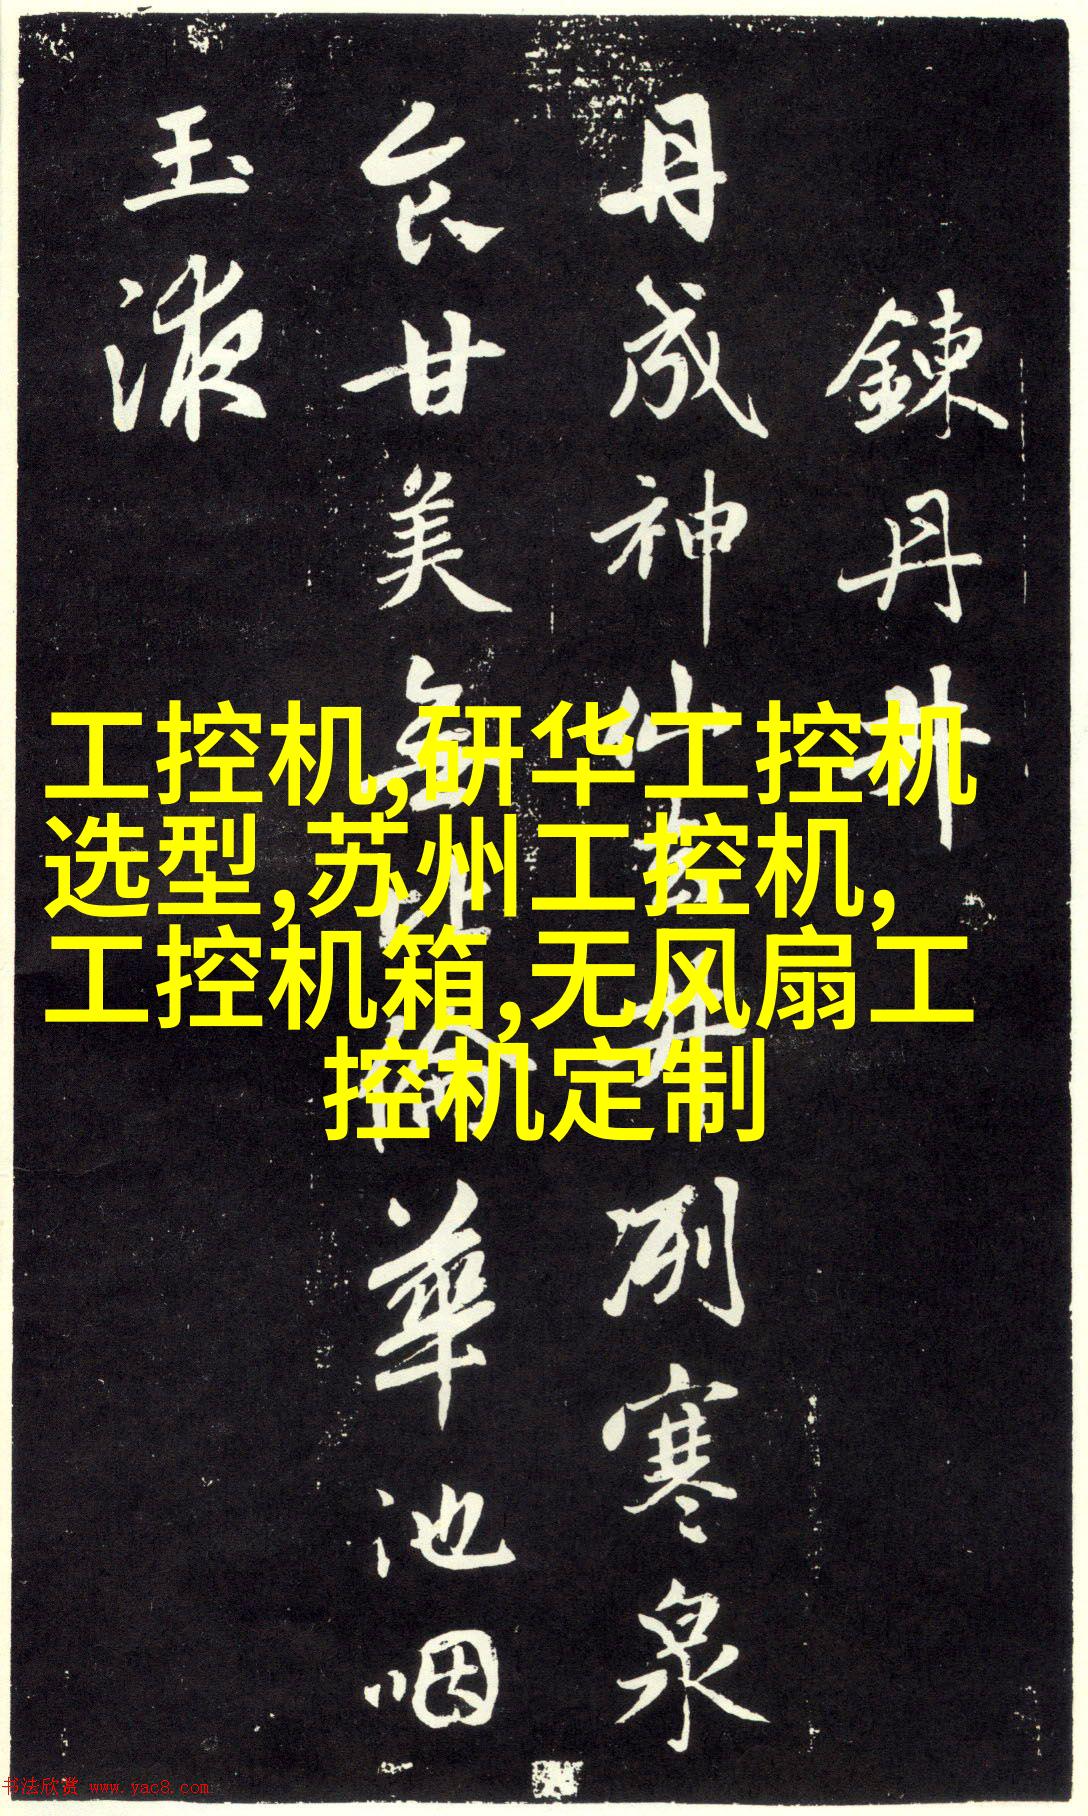 鍊丹井
丹成神仙去井冽寒泉
食甘美無比倫華池咽
玉液
工控机,研华工控机
选型,苏州工控机,
工控机箱,无风扇工
控机定制
书法欣赏 www.yac8.com